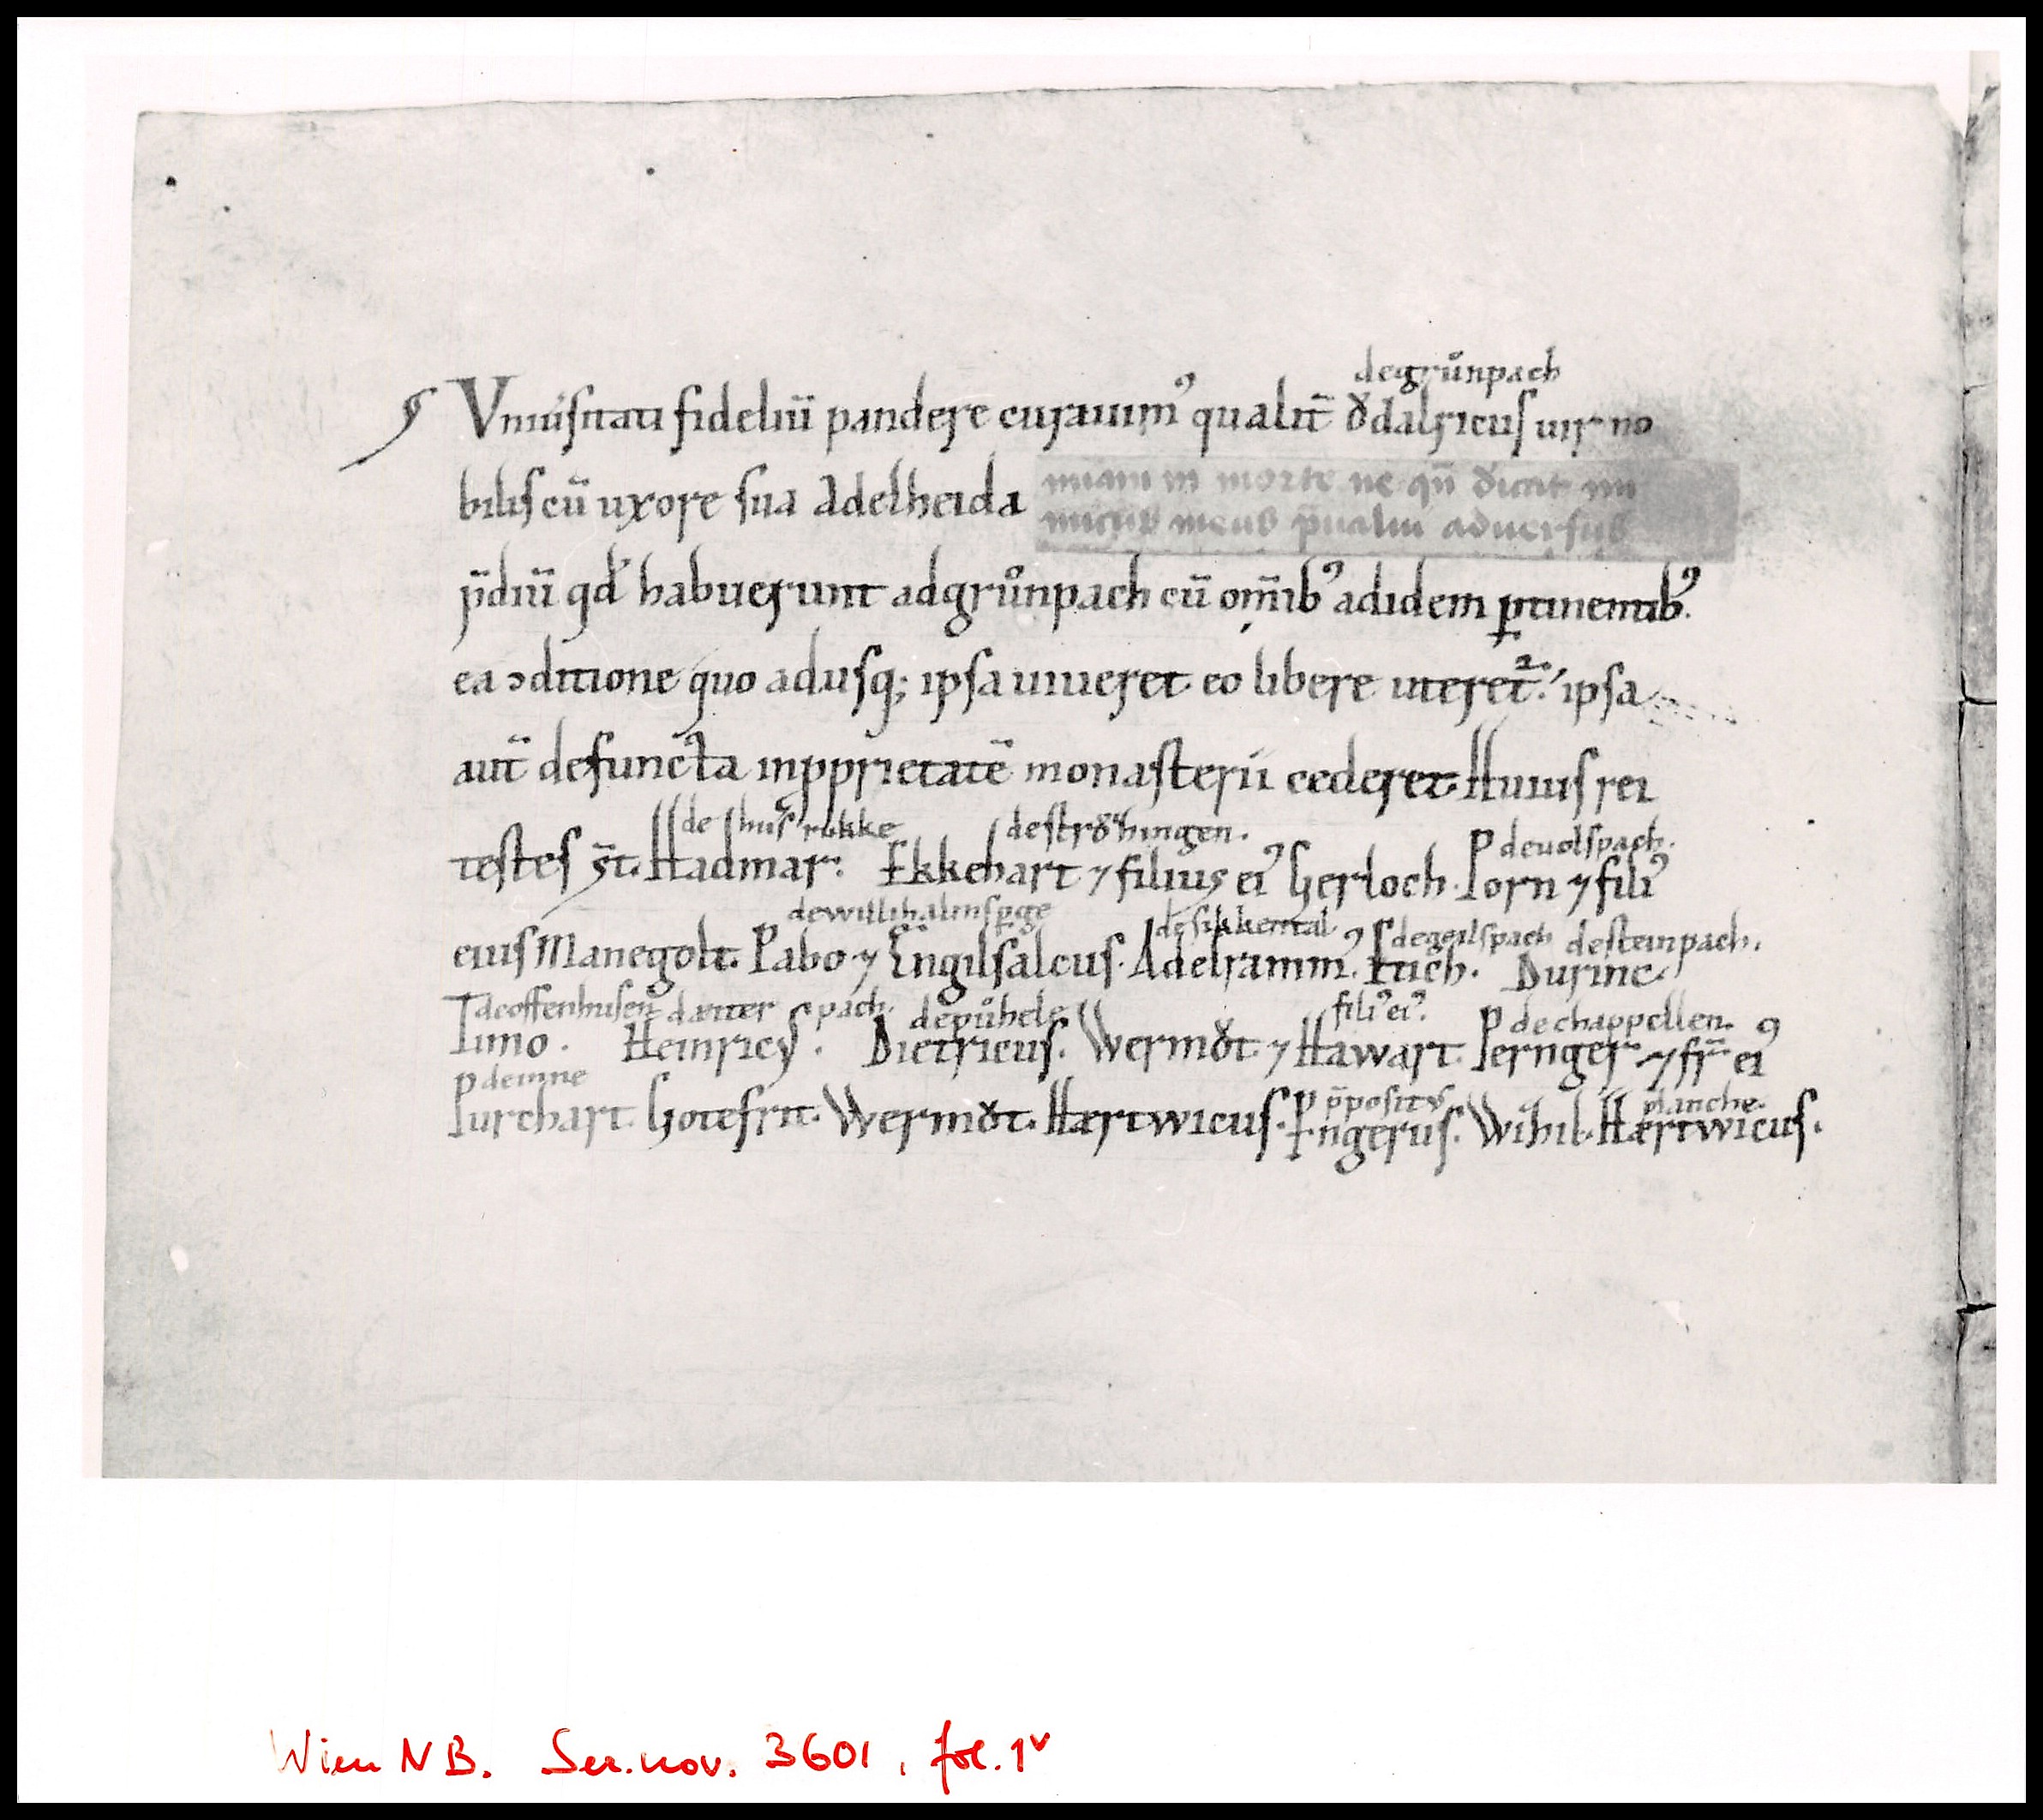 degrůnpach
Vniůſitati fidelıū pandere curauim⁹ qualit̄ ȣ̊dalricuſ uir no
biliſ cū uxore ſua Adelheida
nuam in morte ne qn̄ dicat ini
micus meus p̄ualui adverſus
p̄diū qd̓ habuerunt adgrůnpach cū om̄ib⁹ adidem ꝑtinentib⁹.
ea ↄditione quo aduſq; ipſa uiueret eo libere uteret᷑. ipſa
aut̄ defuncta inꝓprietatē monaſterii cederet. Huiuſ rei
de huſrukke deſtrȣhingen. deuolſpach.
teſteſ s̄t. Hadmar. Ekkehart ⁊ filius ei⁹ Gerloch. Porn ⁊ fili⁹
dewillihalmſp̱ge deſikkental degeilſpach deſteinpach.
eiuſ Manegolt. Pabo ⁊ Engilſalcuſ. Adelramm⁹. Etich. Durinc.
deoffenhuſen dætter pach. depůhele fili⁹ ei⁹. dechappellen.
Timo. Heinricꝰ. Dietricuſ. Wermȣt ⁊ Hawart. Pernger ⁊ fr̄ ei⁹
deinne
Purchart. Gotefrit. Wermȣt. Hærtwicuſ. Engeruſ. Wihil. Hærtwicuſ.
p̄poſitꝰ planche.
Wien NB. Ser. nov. 3601, fol. 1ᵛ